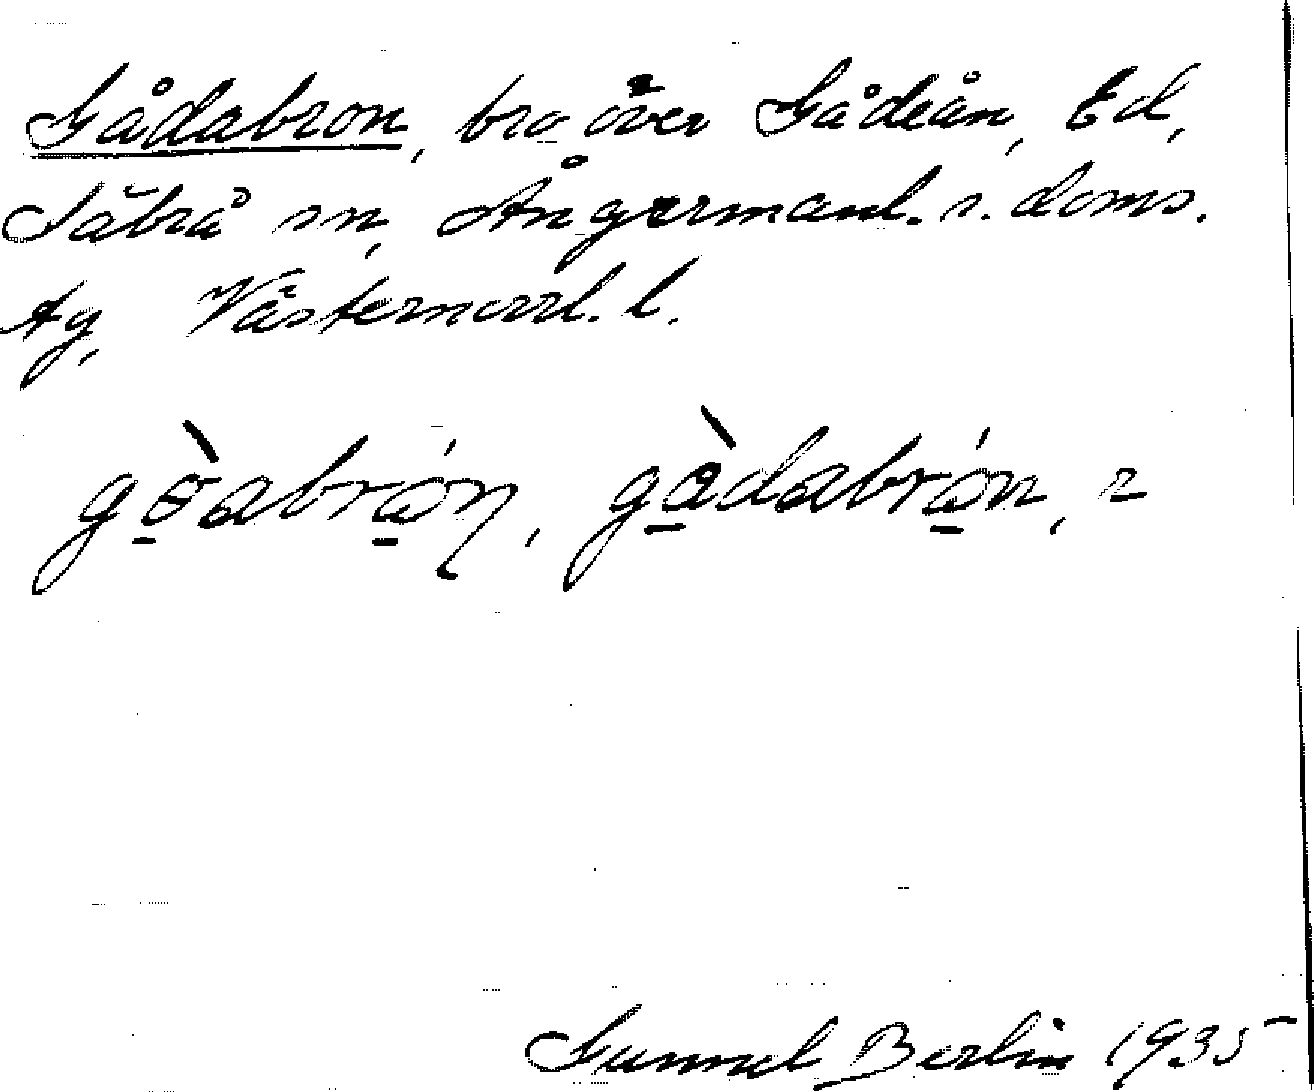 Gådabron, bro över Gådeån, Ed,
Säbrå sn, Ångermanl. s. doms.
tg, Västernorrl. l.
gɵ̀abrón, gàdabrón, 2
Gunnel Berlin 1935